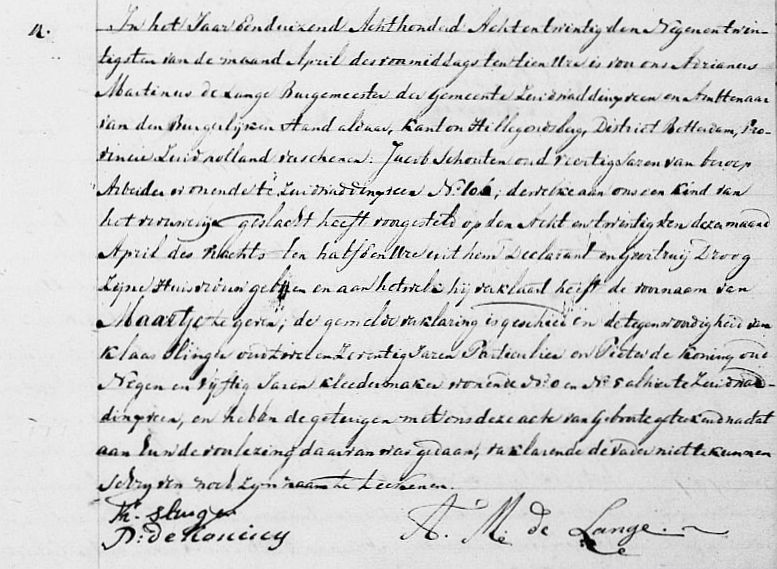 12.
In het Jaar Eenduizend Achthonderd Acht en twintig den Negen en twin-
tigsten van de maand April des voormiddags ten tien Ure is voor ons Adrianus
Martinus de Lange Burgemeester der Gemeente Zuidwaddinxveen en Ambtenaar
van den Burgerlijken Stand aldaar, kanton Hillegersberg, District Rotterdam, Pro-
vincie Zuidholland verschenen: Jacob Schouten oud veertig Jaren van beroep
Arbeider wonende te Zuidwaddinxveen No 106; dewelke aan ons een kind van
het vrouwelijk geslacht heeft voorgesteld op den Acht en twintigsten dezer maand
April des Nachts ten half een Ure uit hem Declarant en Geertruij Droog
Zijne Huisvrouw geboren en aan hetwelk hij verklaard heeft de voornaam van
Maartje te geven; de gemelde verklaring is geschied in de tegenwoordigheid van
Klaas Slinger oud Jaren Particulier en Pieter de Koning oud
Negen en vijftig Jaren kleedermaker wonende No en No 5 alhier te Zuidwad-
dinxveen, en hebben de getuigen met ons deze acte van Geboorte geteekend nadat
aan hun de voorlezing daarvan was gedaan, verklarende de Vader niet te kunnen
Schryven noch Zyn naam te teekenen.
Kl. Slinger
P: de Koning
A. M. de Lange.